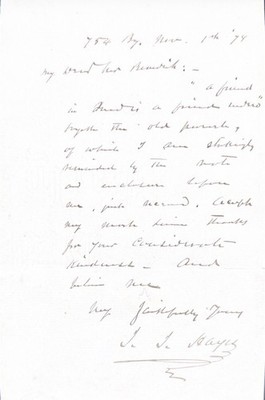 754 By. Nov. 1st '78
My Dear Mr Benedict: —
"a friend
in need is a friend indeed"
the old proverb,
of which I am strikingly
reminded by the
and enclosure before
me, just received. Accept
my most sincere thanks
for your considerate
kindness — And
believe me
Very faithfully Yours
I. I. Hayes